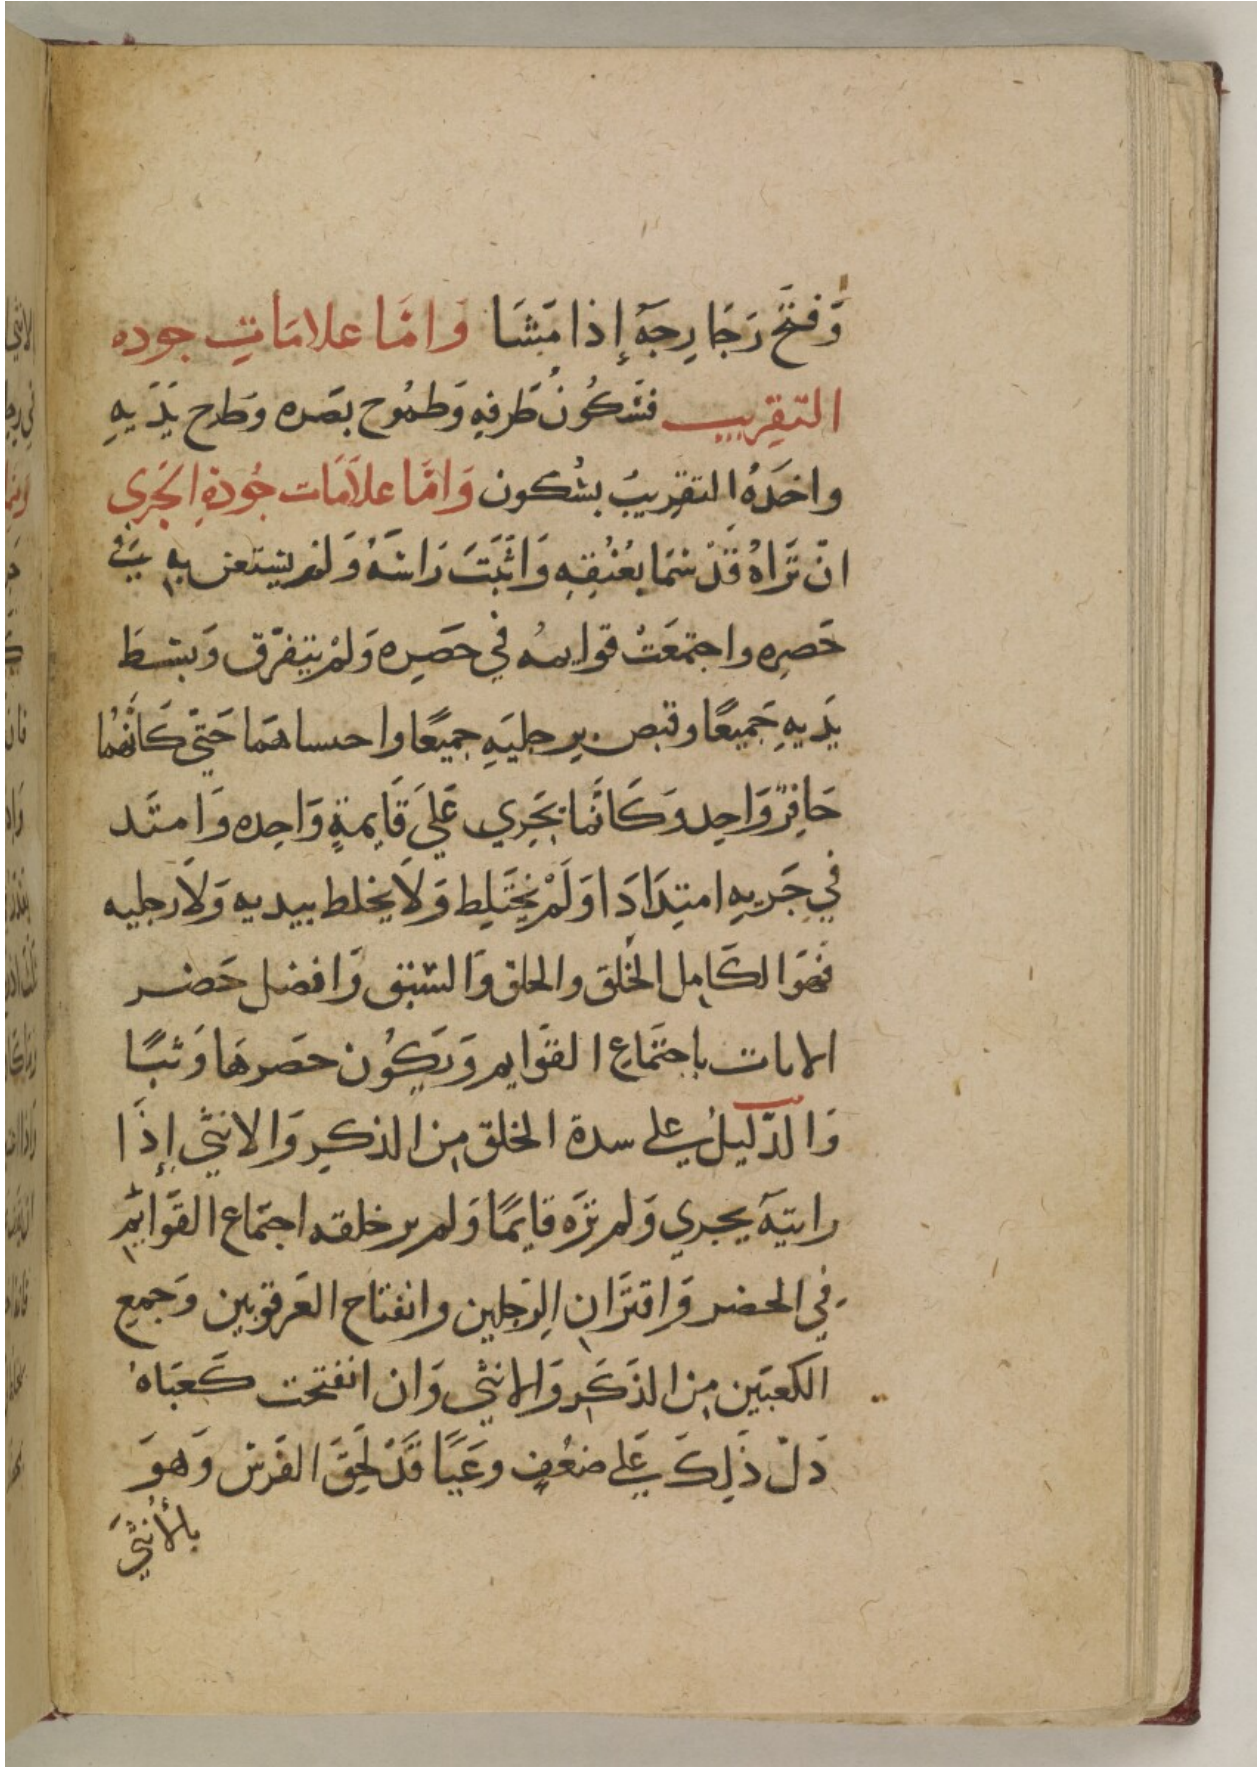 وَفتحَ رَجَا رجهَ إِذا مَشَا وَامَّا علامَاتِ جوده
التقرِيب فسَكُونُ طَرفهِ وَطمُوح بصَره وَطرح يَدَيهِ
واخذهُ التقرِيبُ بسُكون وَامَّا علاَمَات جُودةِ الجَري
انّ تَرَاهُ قَدْ سَمَا بعُنُقِهِ وَاثبَتَ رَاسَهُ وَلم يستعن بهِ في
حَصره واجتمعَتْ قوايمهُ في حَصره وَلمْ يتَفرّق وَبسَط
يَديهِ جَميعًا وقبص برجليَهِ جميعًا واحساهمَا حَتيّ كَأنَّهُمَا
حَافِرٌ وَاحِد وَكَانَّما يَجرِي عَليَ قَايِمةٍ وَاحِده وَامتَد
في جَريهِ امتِدَادَا وَلَمْ يَختَلِط وَلَا يخلط بيديه وَلَا رجليه
فهوَا الكَامِل الخَلق والحلق وَالسَبق وَافضل حَضر
الاناث باجتَماعِ القوَايم وَيَكُون حصرهَا وَثبًا
وَالدّليلُ على سدة الخلق مِن الذكرِ وَالانثَي إِذَا
رايتهَ يجري وَلم تَرَه قايمًا وَلم ير خلقه اجتمَاع القوَايِم
في الحضر وَاقترَان الرَجلين وانفتاح العَرقوبين وَجمِيع
الكعبَين مِن الذَكَر وَالانثي وَان انفتحت كَعبَاهُ
دَلّ ذَلِكَ عَلي ضعُفٍ وعَيبًا قَدْ لَحِقَ الفَرسْ وَهوَ
بالأُنثَي